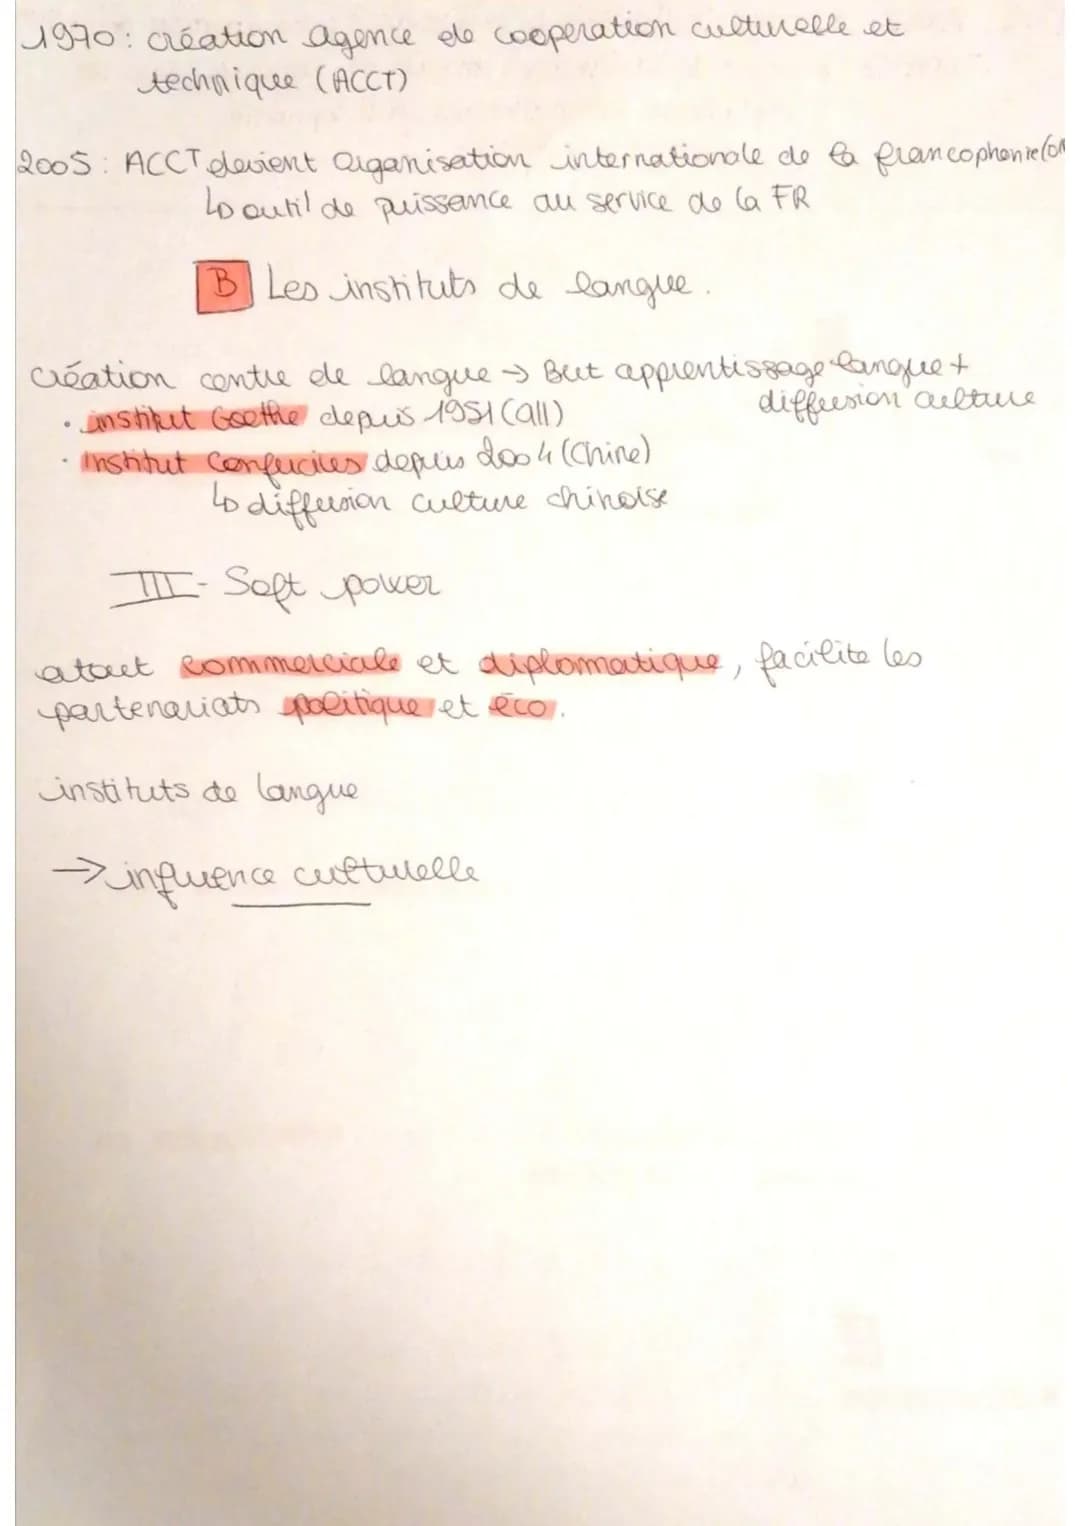 1970 : création agence de cooperation culturelle et
technique (ACCT)
2005 : ACCT devient organisation internationale de la francophonie (OI
↳ outil de puissance au service de la FR
B Les instituts de langue.
création centre de langue → But apprentissage langue +
diffusion culture
• institut Goethe depuis 1951 (all)
• Institut Confucius depuis 2004 (Chine)
↳ diffusion culture chinoise
III - Soft power
atout commerciale et diplomatique, facilite les
partenariats politique et éco.
instituts de langue
→ influence culturelle